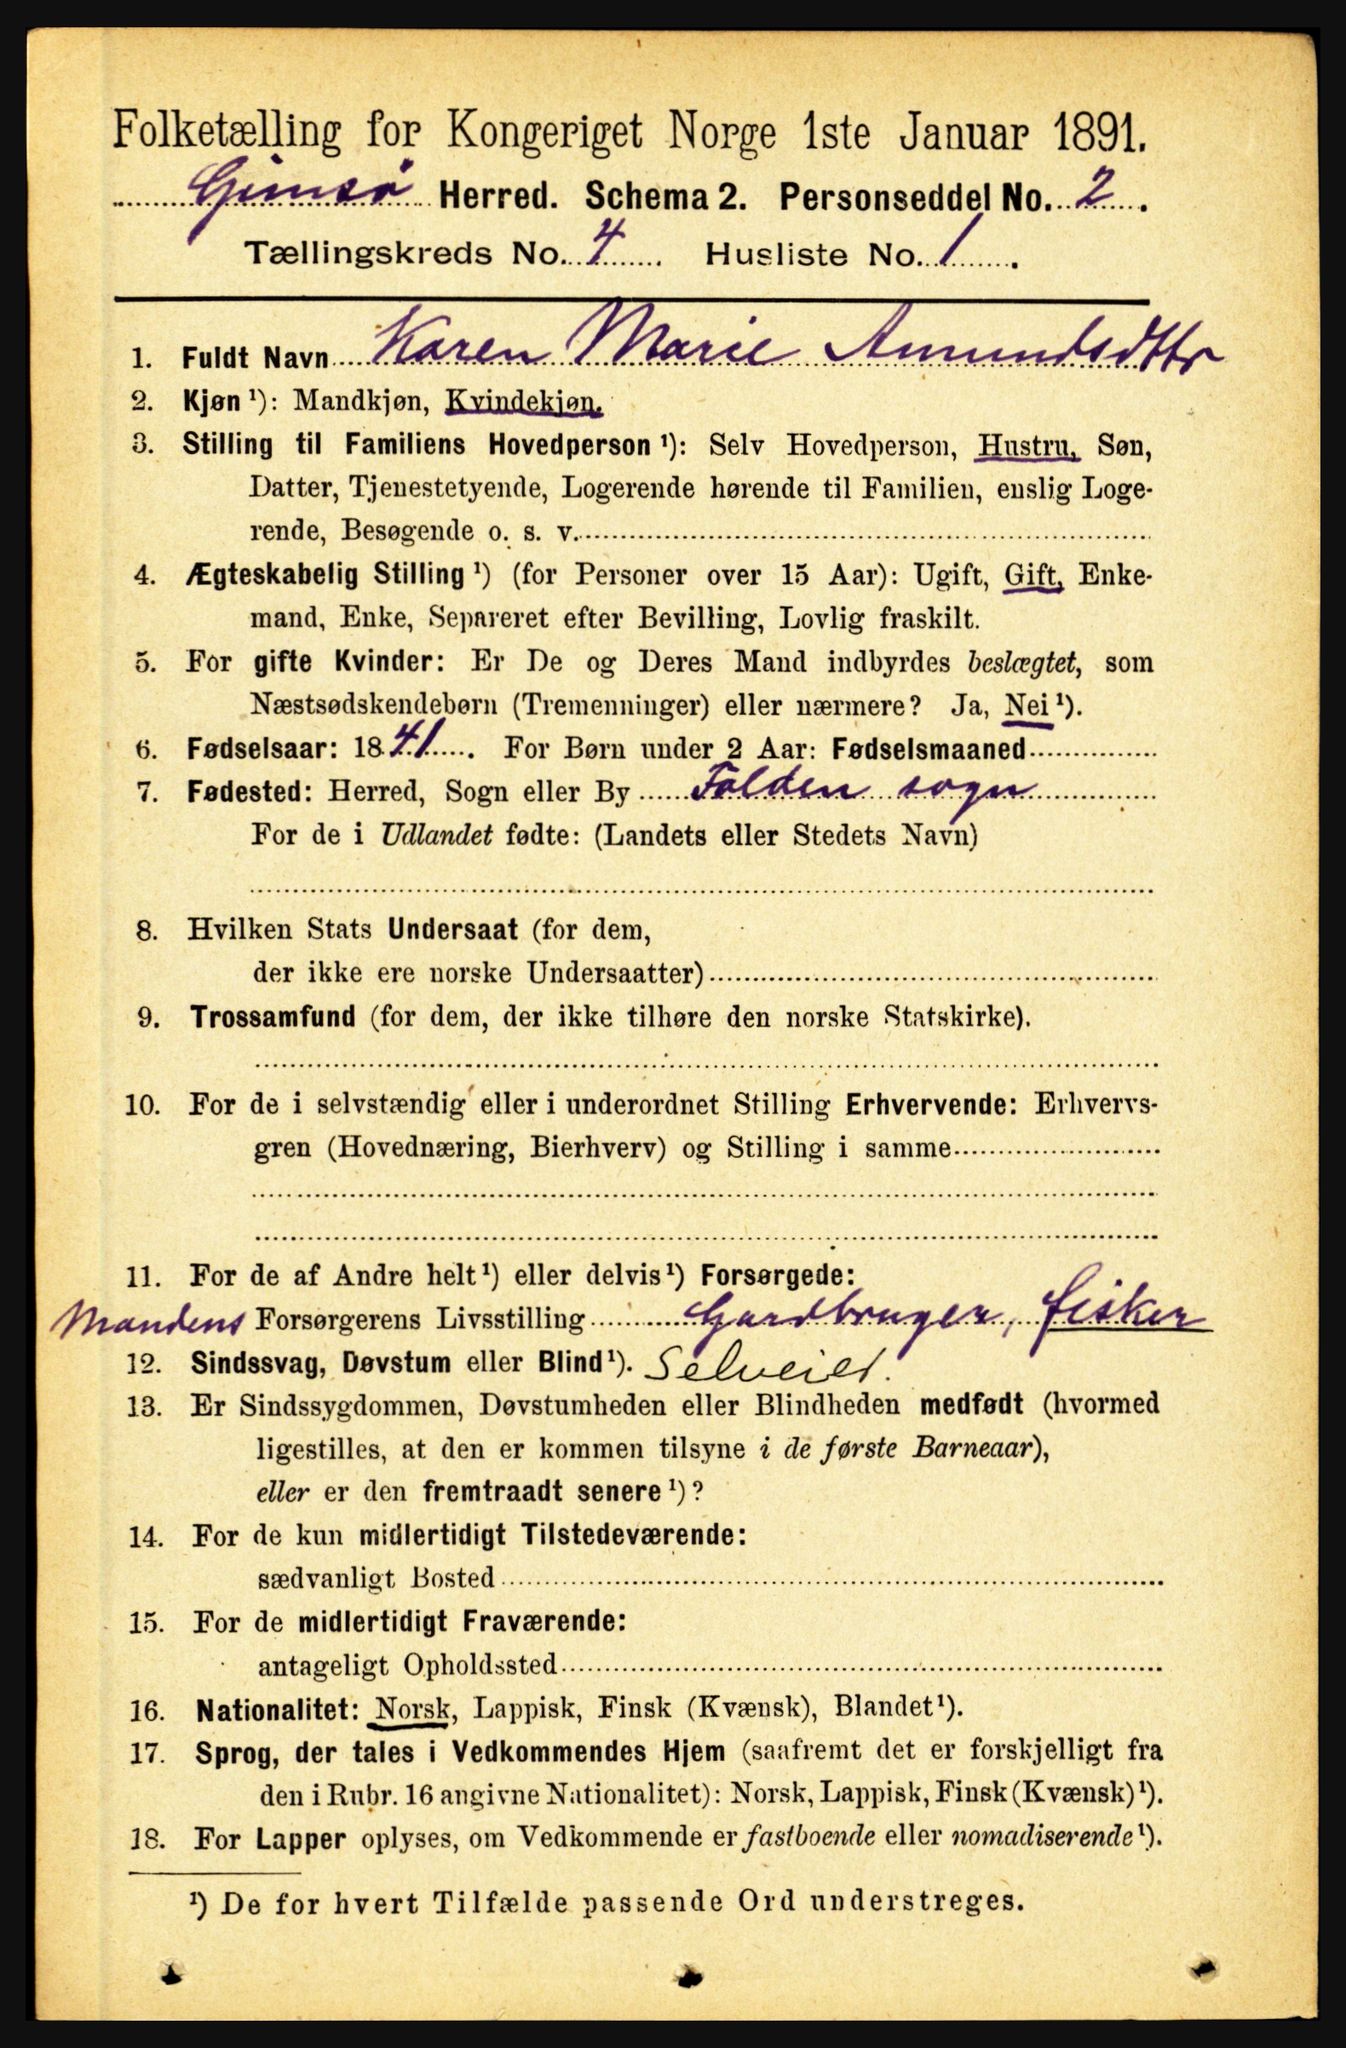 Folketælling for Kongeriget Norge 1ste Januar 1891.
Gimsø Herred. Schema 2. Personseddel No. 2.
Tællingskreds No. 4. Husliste No. 1.
1. Fuldt Navn Karen Marie Amundsdttr
2. Kjøn ¹): Mandkjøn, Kvindekjøn.
3. Stilling til Familiens Hovedperson ¹): Selv Hovedperson, Hustru, Søn,
Datter, Tjenestetyende, Logerende hørende til Familien, enslig Loge-
rende, Besøgende o. s. v.
4. Ægteskabelig Stilling ¹) (for Personer over 15 Aar): Ugift, Gift, Enke-
mand, Enke, Separeret efter Bevilling, Lovlig fraskilt.
5. For gifte Kvinder: Er De og Deres Mand indbyrdes beslægtet, som
Næstsødskendebørn (Tremenninger) eller nærmere? Ja, Nei ¹).
6. Fødselsaar: 1841. For Børn under 2 Aar: Fødselsmaaned
7. Fødested: Herred, Sogn eller By Folden sogn
For de i Udlandet fødte: (Landets eller Stedets Navn)
8. Hvilken Stats Undersaat (for dem,
der ikke ere norske Undersaatter)
9. Trossamfund (for dem, der ikke tilhøre den norske Statskirke).
10. For de i selvstændig eller i underordnet Stilling Erhvervende: Erhvervs-
gren (Hovednæring, Bierhverv) og Stilling i samme
11. For de af Andre helt ¹) eller delvis ¹) Forsørgede:
Mandens Forsørgerens Livsstilling Gardbruger, fisker
12. Sindssvag, Døvstum eller Blind ¹). Selveier.
13. Er Sindssygdommen, Døvstumheden eller Blindheden medfødt (hvormed
ligestilles, at den er kommen tilsyne i de første Barneaar),
eller er den fremtraadt senere ¹)?
14. For de kun midlertidigt Tilstedeværende:
sædvanligt Bosted
15. For de midlertidigt Fraværende:
antageligt Opholdssted
16. Nationalitet: Norsk, Lappisk, Finsk (Kvænsk), Blandet ¹).
17. Sprog, der tales i Vedkommendes Hjem (saafremt det er forskjelligt fra
den i Rubr. 16 angivne Nationalitet): Norsk, Lappisk, Finsk (Kvænsk) ¹).
18. For Lapper oplyses, om Vedkommende er fastboende eller nomadiserende ¹).
¹) De for hvert Tilfælde passende Ord understreges.